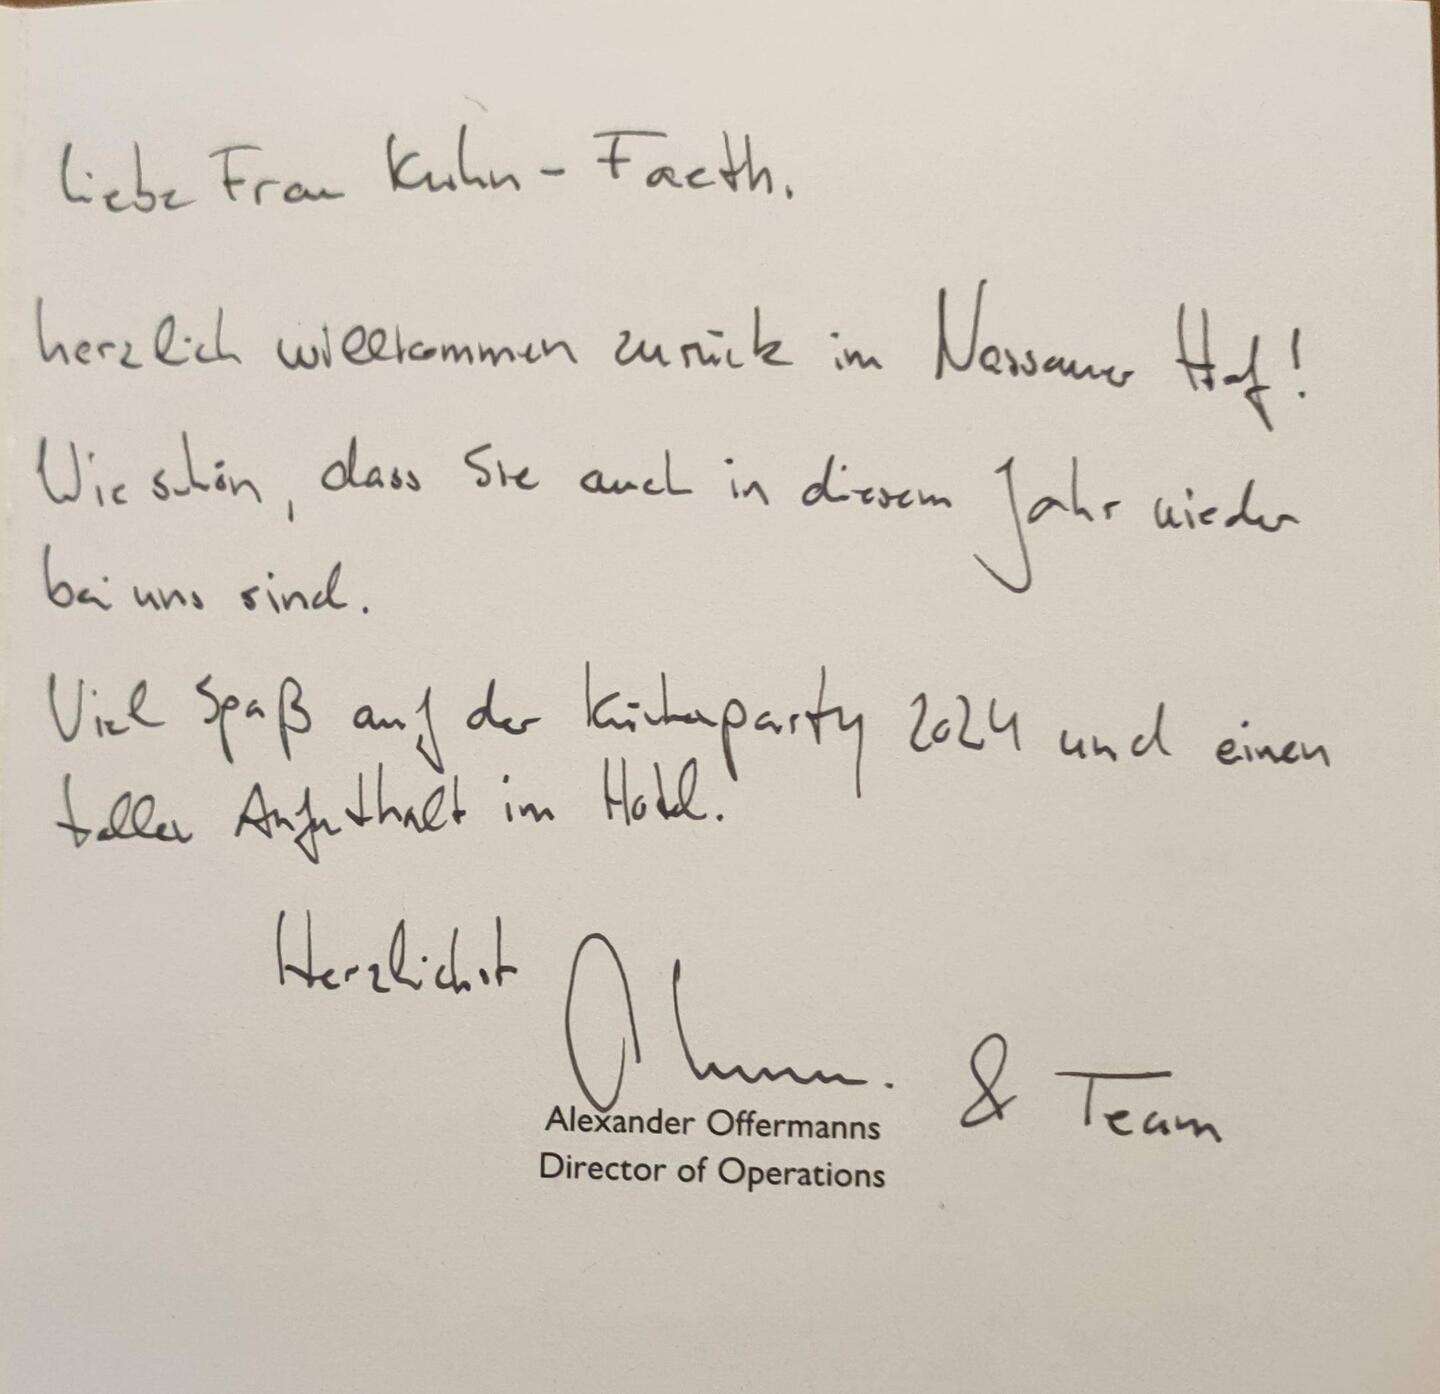 Liebe Frau Kuhn-Faeth,
herzlich willkommen zurück im Nassauer Hof!
Wie schön, dass Sie auch in diesem Jahr wieder
bei uns sind.
Viel Spaß auf der Küchenparty 2024 und einen
tollen Aufenthalt im Hotel.
Herzlichst
& Team
Alexander Offermanns
Director of Operations